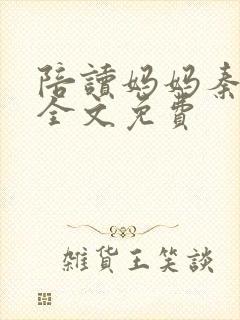 陪讀媽媽秦
全文免費
雜貨王笑談